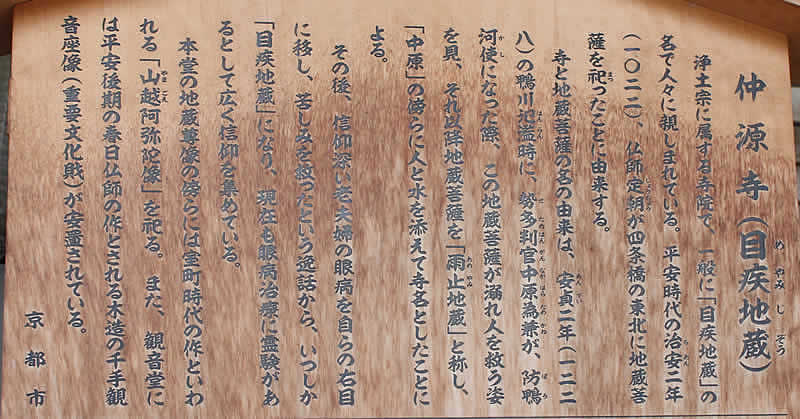 仲源寺（目疾地蔵）
浄土宗に属する寺院で、一般に「目疾地蔵」の
名で人々に親しまれている。平安時代の治安二年
（一〇二二）、仏師定朝が四条橋の東北に地蔵菩
薩を祀ったことに由来する。
寺と地蔵菩薩の名の由来は、安貞二年（一二二
八）の鴨川氾濫時に、勢多判官中原為兼が、防鴨
河使になった際、この地蔵菩薩が溺れ人を救う姿
を見、それ以降地蔵菩薩を「雨止地蔵」と称し、
「中原」の傍らに人と水を添えて寺名としたことに
よる。
その後、信仰深い老夫婦の眼病を自らの右目
に移し、苦しみを救ったという逸話から、いつしか
「目疾地蔵」になり、現在も眼病治療に霊験があ
るとして広く信仰を集めている。
本堂の地蔵尊像の傍らには室町時代の作といわ
れる「山越阿弥陀像」を祀る。また、観音堂に
は平安後期の春日仏師の作とされる木造の千手観
音座像（重要文化財）が安置されている。
京都市